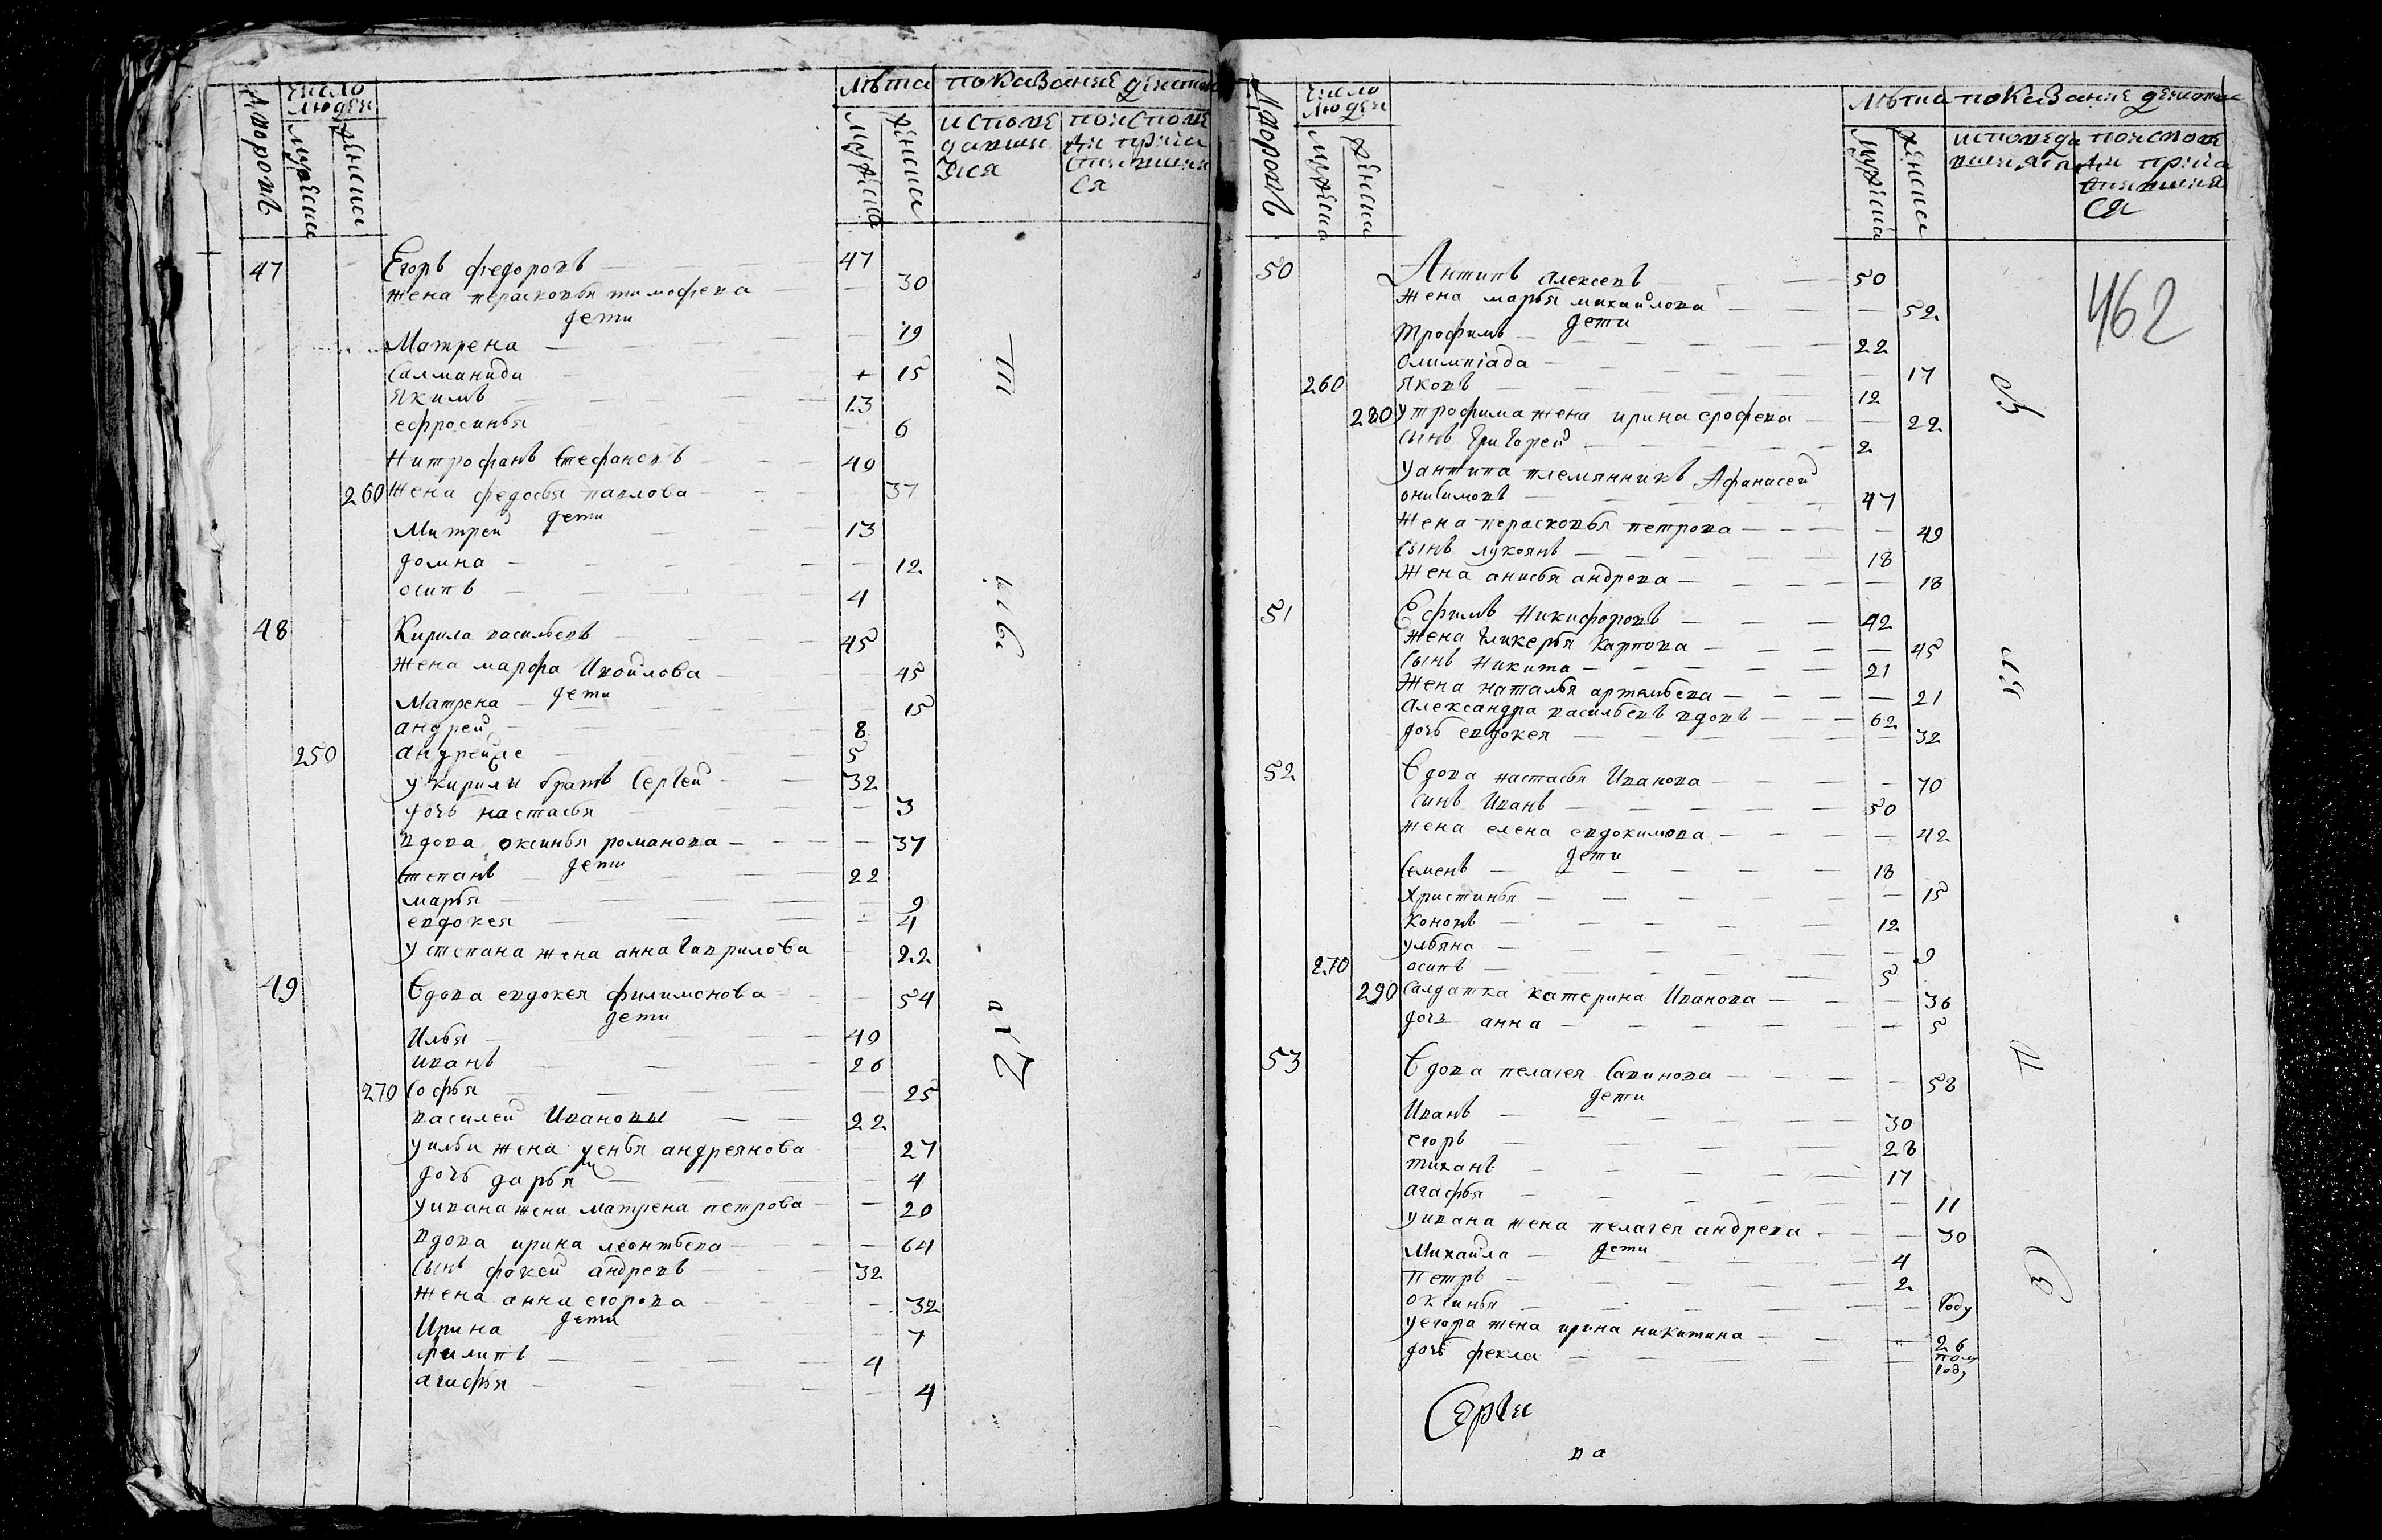 дворовъ
число людей
мужеска
женска
лѣта
мужеска
женска
показание действ
исповедавшияся
по исповеди причастившияся
47 Егоръ федоровъ 47
жена перасковья тимофева 30
дети
Матрена 19
Салманида 15
якимъ 13
ефросинья 6
Митрофанъ Стефановъ 40
260 жена федосья павлова 37
дети
Митреи 13
домна 12
осипъ 4
48 Кирила васильевъ 45
жена марфа Ивоилова 45
дети
Матрена 15
андреи 8
250 андреи же 5
у кирилы братъ Сергеи 32
дочь настасья 3
вдова оксинья романова 37
дети
Степанъ 22
марья 9
евдокея 4
у степана жена анна Гаврилова 22
49 Вдова евдокея филимонова 54
дети
Илья 40
иванъ 26
270 Софья 25
василеи Ивановы 22
у ильи жена андреянова 27
дочь дарья 4
у ивана жена матрена петрова 20
вдова ирина леонтьева 64
сынъ фокеи андревъ 32
жена анна егорова 32
дети
Ирина 7
филипъ 4
агафья 4
дворовъ
число людей
мужеска
женска
лѣта
мужеска
женска
показание действ
исповедавшияся
по исповеди причастившияся
462
50 Антипъ алексевъ 50
жена марья михаилова 52
дети
трофимъ 22
Олимпіада 17
260 яковъ 12
280 у трофима жена ирина ерофева 22
сынъ Григореи 2
у антипа племянникъ Афанасеи
онисимовъ 47
жена перасковья петрова 49
сынъ лукоянъ 18
жена анисья андрева 18
51 Ефимъ Никифоровъ 42
жена Гликерья карпова 45
сынъ Никита 21
жена наталья артемьева 21
александра васильевъ вдовъ 62
дочь евдокея 32
52 Вдова настасья Иванова 70
сынъ Иванъ 50
жена елена евдокимова 42
дети
Семенъ 18
Христинья 15
Кононъ 12
ульяна 9
270 осипъ 5
290 Салдатка катерина Иванова 36
дочь анна 5
53 Вдова пелагея Савинова 58
дети
Иванъ 30
егоръ 28
тиханъ 17
агафья 11
у ивана жена пелагея андрева 30
дети
Михаила 4
Петръ 2
оксинья Году
у егора жена ирина никитина 26
дочь фекла пол году
Серги
ва